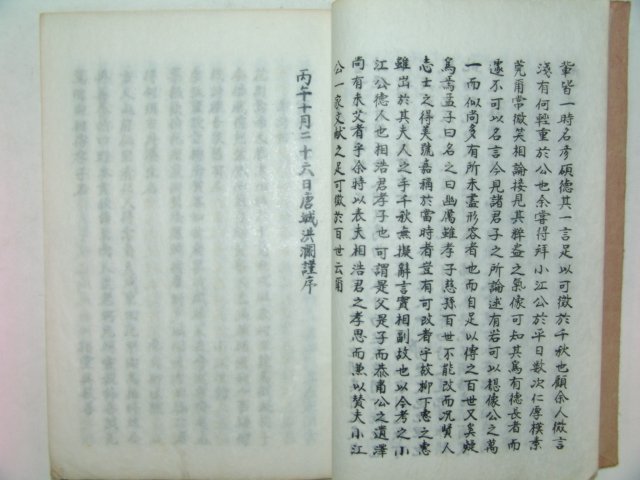 輩皆一時名彦碩德其一言足以可徵於千秋也顧余人微言
淺有何輕重於公也余嘗得拜小江公於平日數次仁厚樸素
莞甭常微笑相論接見其粹盎之氣像可知其爲有德長者而
遽不可以名言今見諸君子之所論述有若可以想像公之萬
一而似尚多有所未盡形容者也而自足以傳之百世又奚疑
焉孟子曰名之曰幽厲雖孝子慈孫百世不能改而况贊人
志士之得美號嘉稱於當時者豈有可改者乎故柳下惠之惠
雖出於其夫人之手千秋無擬辭言實相副故也以今考之小
江公德人也相浩君孝子也可謂是父是子而恭甫公之遺澤
尚有未艾者乎余特以表夫相浩君之孝思而兼以贊夫小江
公一家文献之足可徵於百世云爾
丙午十月二十六日唐城洪瀾謹序